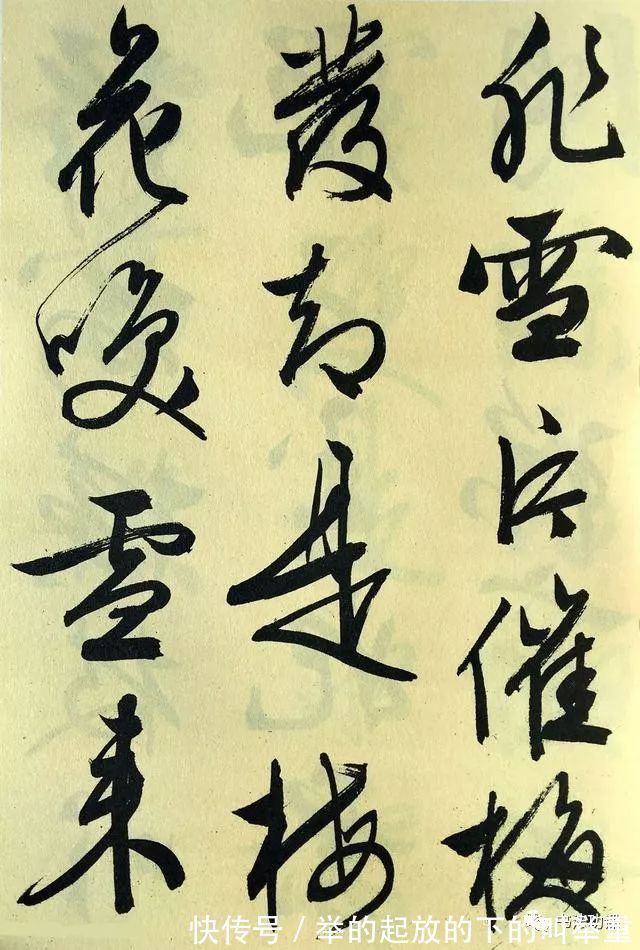 飛雪片催梅
發却是梅
花唤雪来
快传号 / 举的起放的下的叫举重